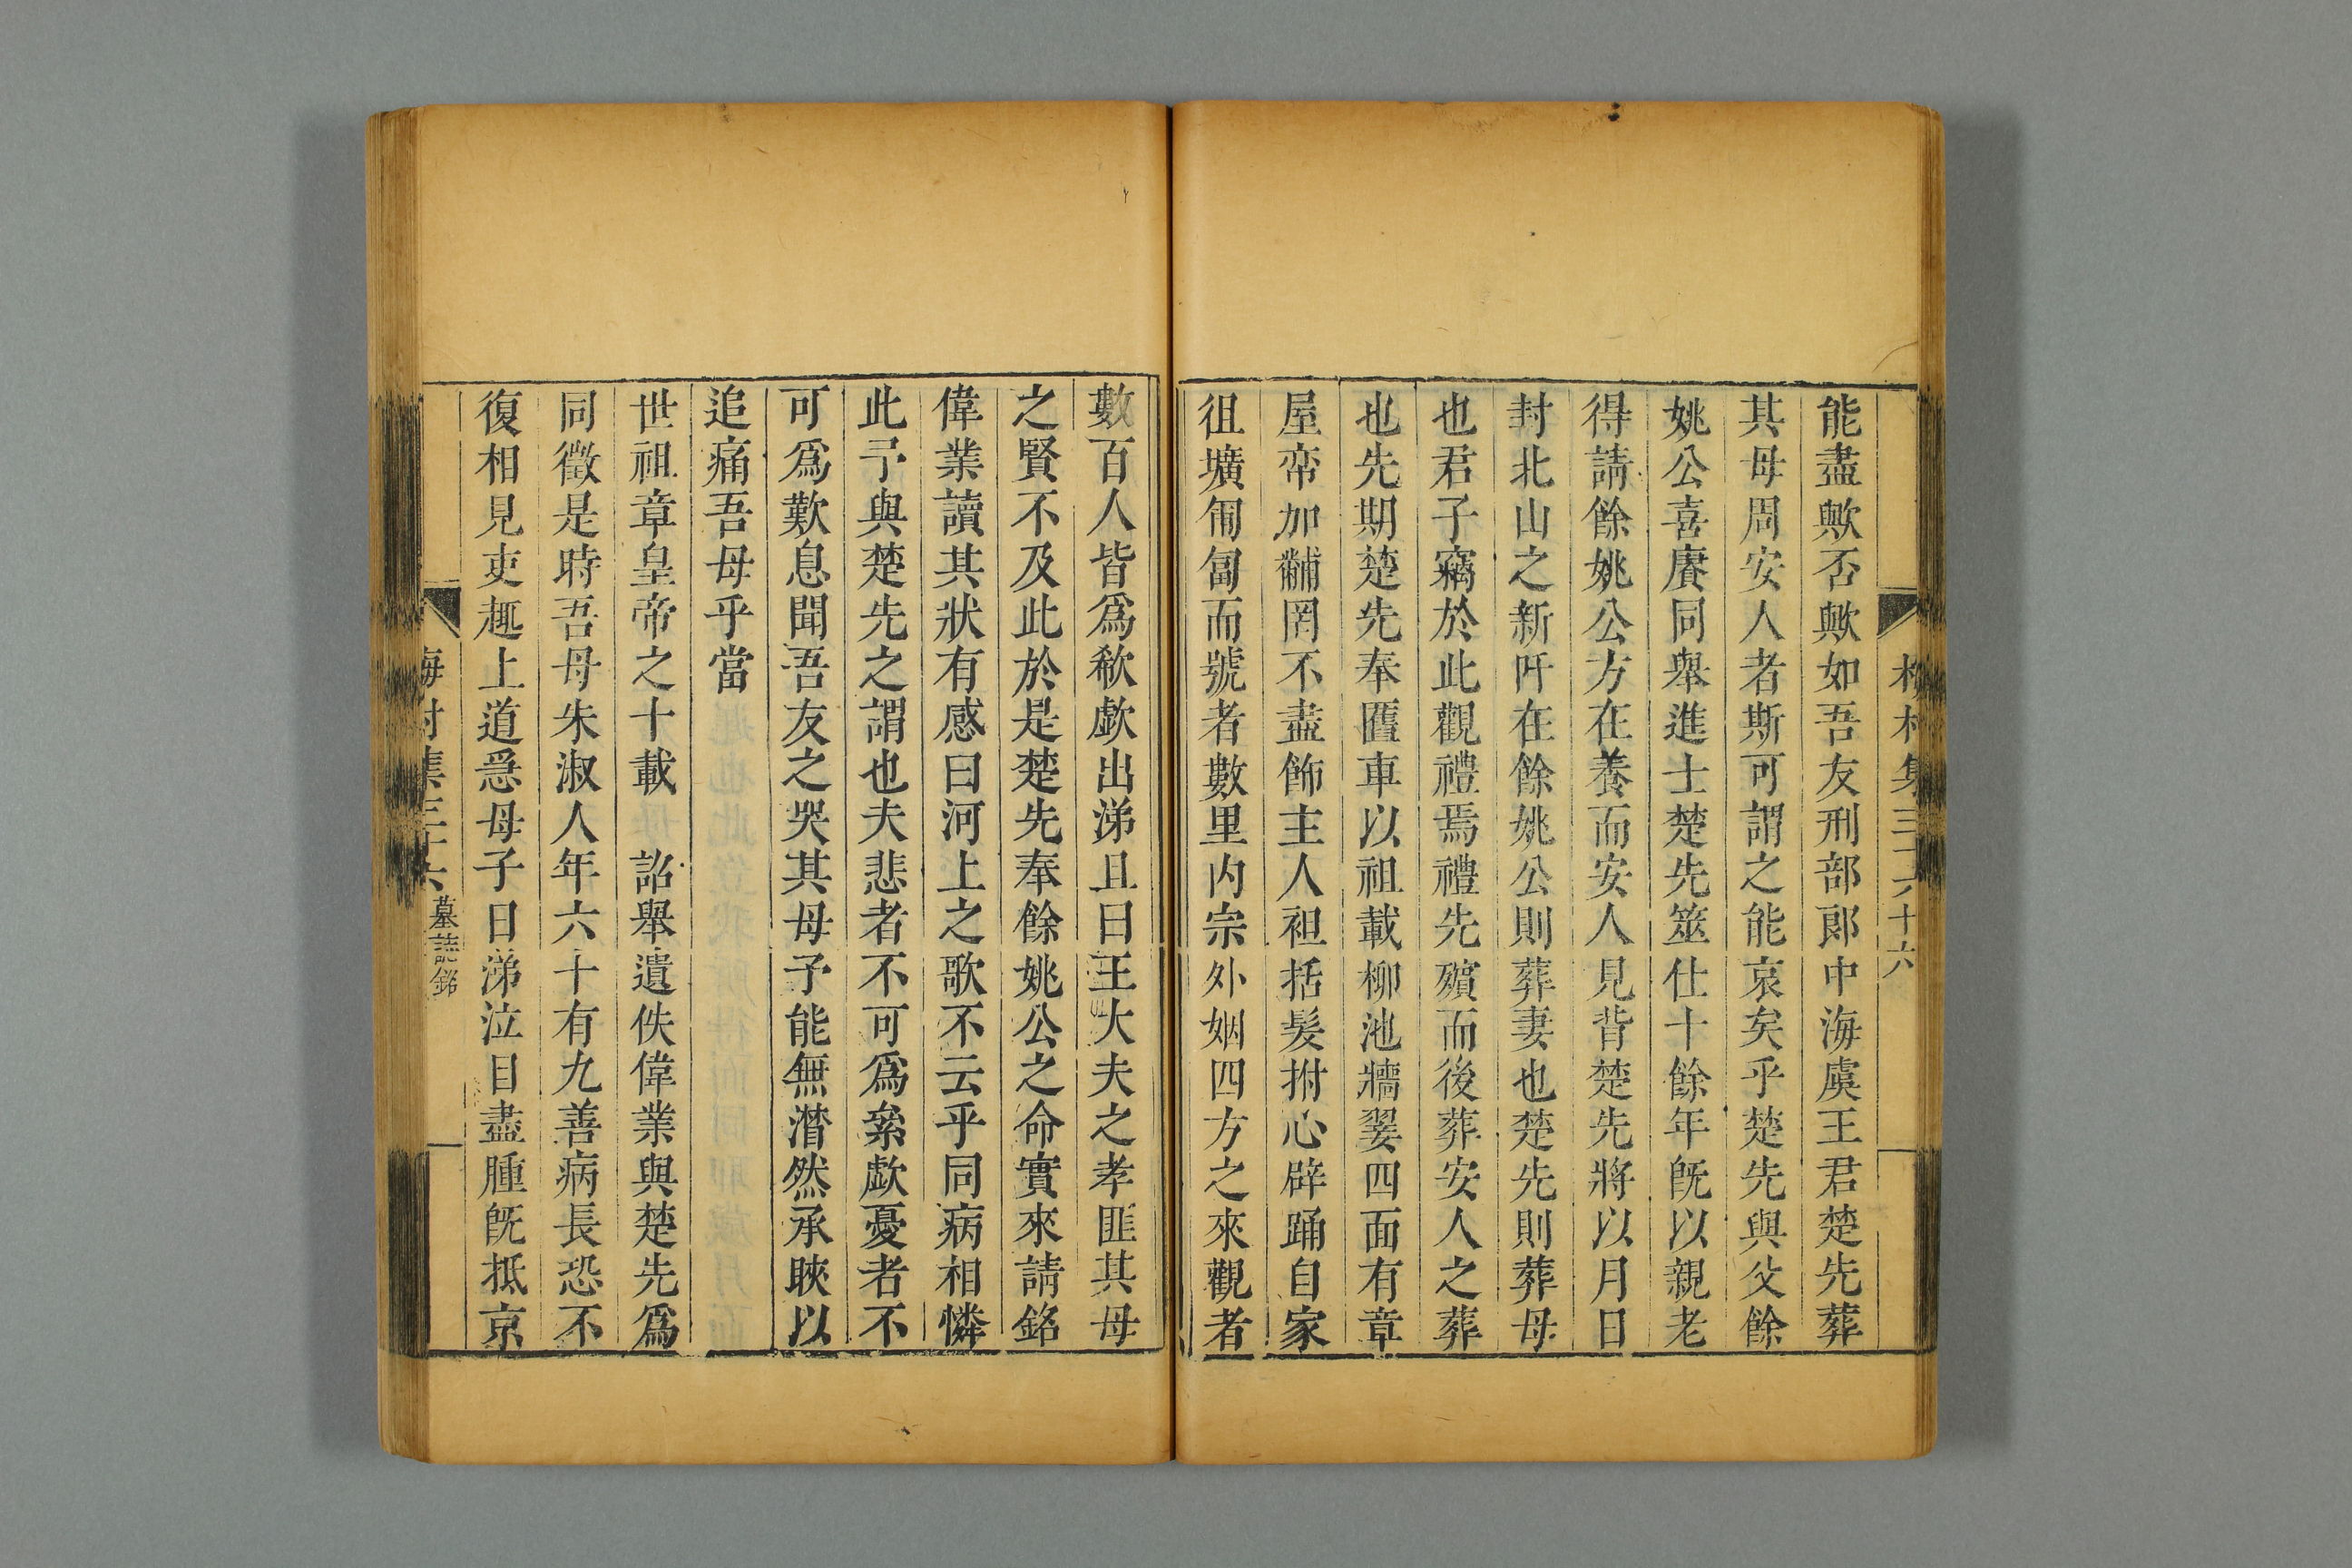 能盡歟否歟如吾友刑部郎中海虞王君楚先葬
其母周安人者斯可謂之能哀矣乎楚先與父餘
姚公喜賡同舉進士楚先筮仕十餘年旣以親老
得請餘姚公方在養而安人見背楚先將以月日
封北山之新阡在餘姚公則葬妻也楚先則葬母
也君子竊於此觀禮焉禮先殯而後葬安人之葬
也先期楚先奉匶車以祖載柳池牆翣四面有章
屋帟加黼罔不盡飾主人袒括髮拊心辟踊自家
徂壙匍匐而號者數里内宗外姻四方之來觀者
數百人皆爲欷歔出涕且曰王大夫之孝匪其母
之賢不及此於是楚先奉餘姚公之命實來請銘
偉業讀其狀有感曰河上之歌不云乎同病相憐
此予與楚先之謂也夫悲者不可爲絫歔憂者不
可爲歎息聞吾友之哭其母予能無潸然承䀹以
追痛吾母乎當
世祖章皇帝之十載 詔舉遺佚偉業與楚先爲
同徵是時吾母朱淑人年六十有九善病長恐不
復相見吏趣上道惡母子日涕泣目盡腫旣抵京
梅村集三十六 墓誌銘